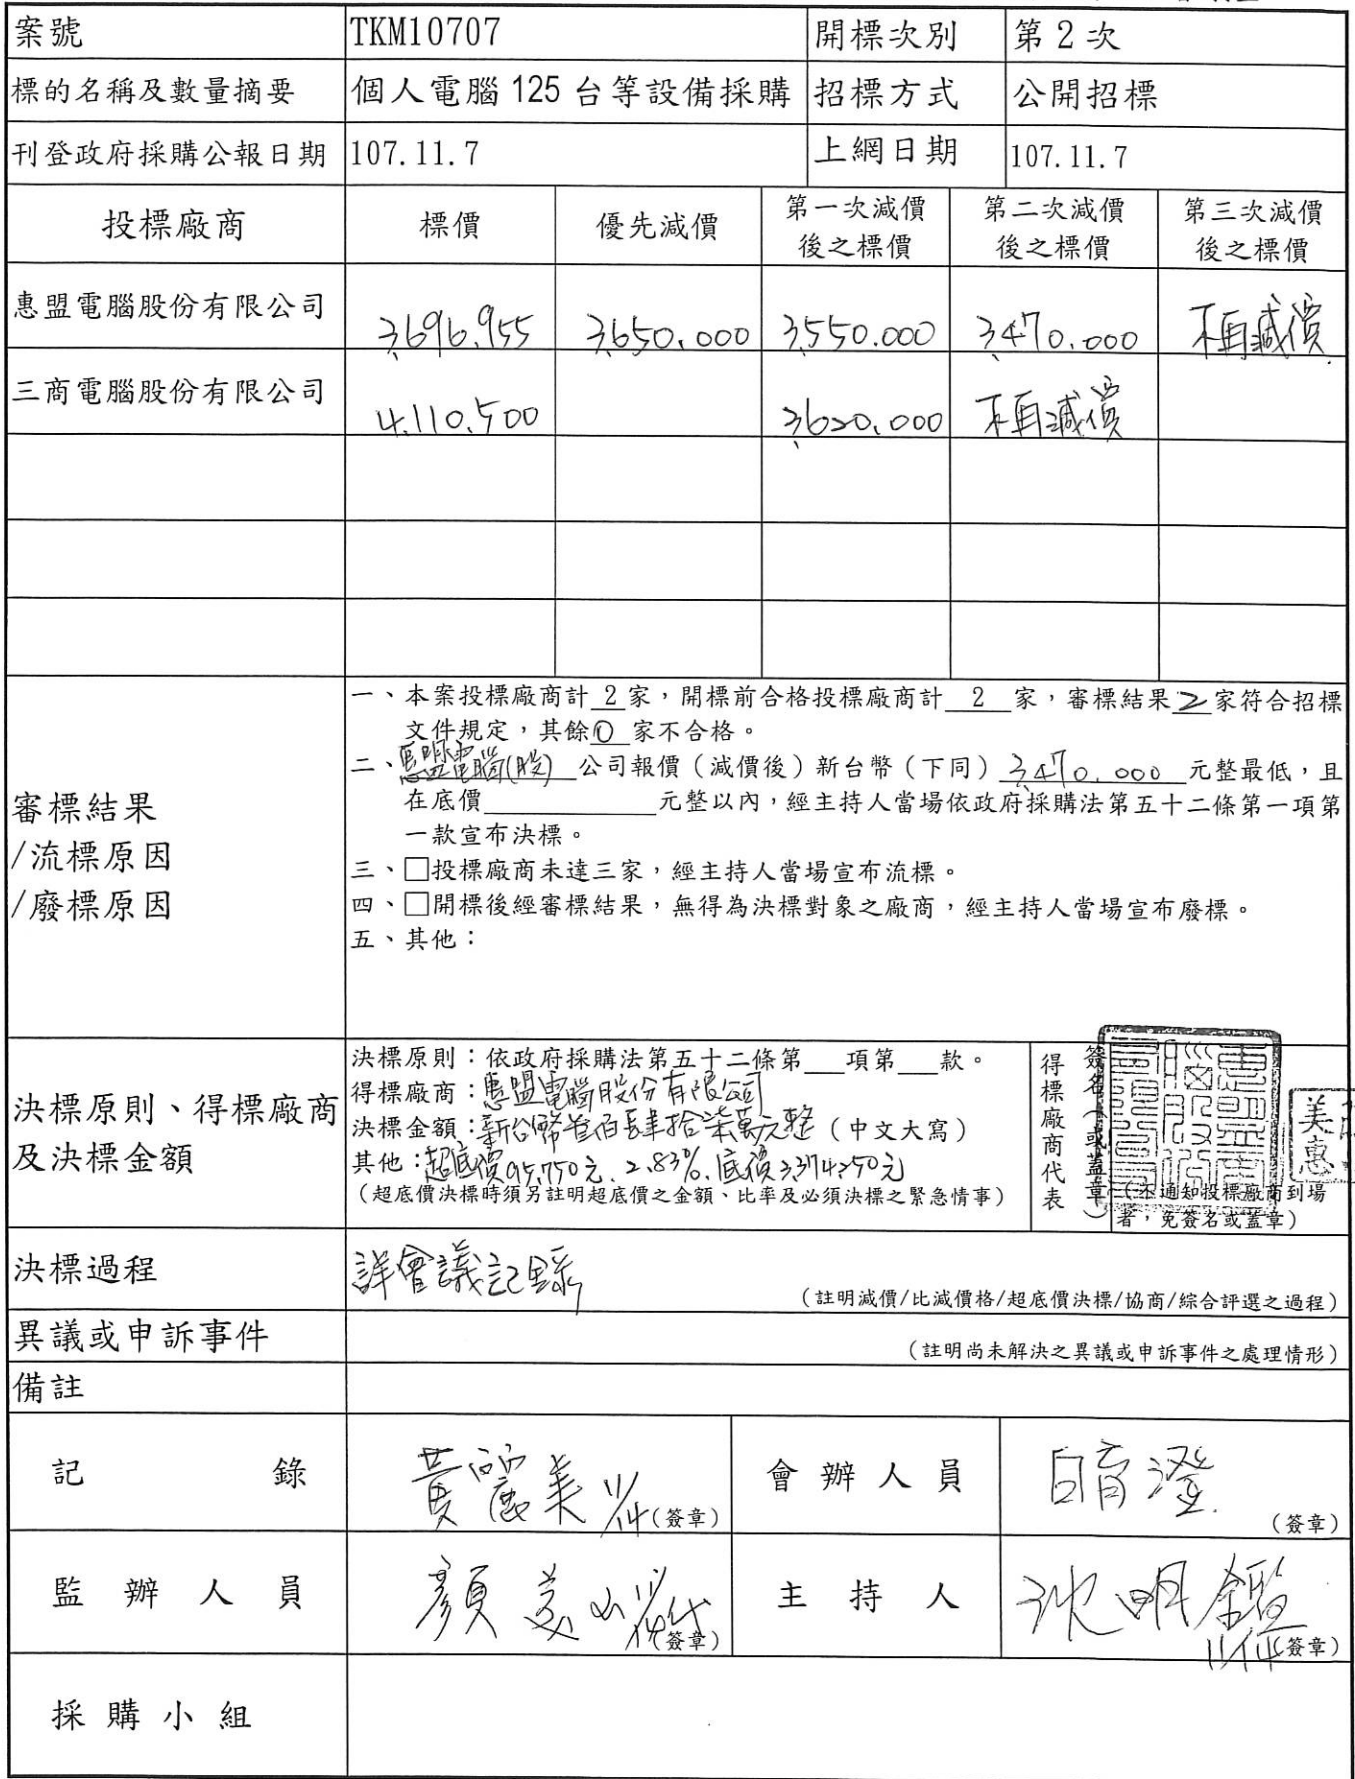 案號 TKM10707 開標次別 第2次
標的名稱及數量摘要 個人電腦 125 台等設備採購 招標方式 公開招標
刊登政府採購公報日期 107.11.7 上網日期 107.11.7
投標廠商 標價 優先減價 第一次減價 後之標價 第二次減價 後之標價 第三次減價 後之標價
惠盟電腦股份有限公司 3,696,955 3,650,000 3,550,000 3,470,000 不再減價
三商電腦股份有限公司 4,110,500 3,620,000 不再減價
審標結果
/流標原因
/廢標原因
一、本案投標廠商計 2 家，開標前合格投標廠商計 2 家，審標結果 2 家符合招標
文件規定，其餘 0 家不合格。
二、惠盟電腦(股) 公司報價（減價後）新台幣（下同） 3,470,000 元整最低，且
在底價 元整以內，經主持人當場依政府採購法第五十二條第一項第
一款宣布決標。
三、□投標廠商未達三家，經主持人當場宣布流標。
四、□開標後經審標結果，無得為決標對象之廠商，經主持人當場宣布廢標。
五、其他：
決標原則、得標廠商
及決標金額
決標原則：依政府採購法第五十二條第 項第 款。
得標廠商：惠盟電腦股份有限公司
決標金額：新台幣叁佰肆拾柒萬元整（中文大寫）
其他：超底價95,750元. 2.83%. 底價3,374,250元
（超底價決標時須另註明超底價之金額、比率及必須決標之緊急情事）
得標廠商代表
簽名（或蓋章）
（未通知投標廠商到場
者，免簽名或蓋章）
美惠
決標過程 詳會議記錄
（註明減價/比減價格/超底價決標/協商/綜合評選之過程）
異議或申訴事件
（註明尚未解決之異議或申訴事件之處理情形）
備註
記錄 黃麗美 11/14 （簽章） 會辦人員 白育澄 （簽章）
監辦人員 顏 （簽章） 主持人 沈明鑑 11/14 （簽章）
採購小組